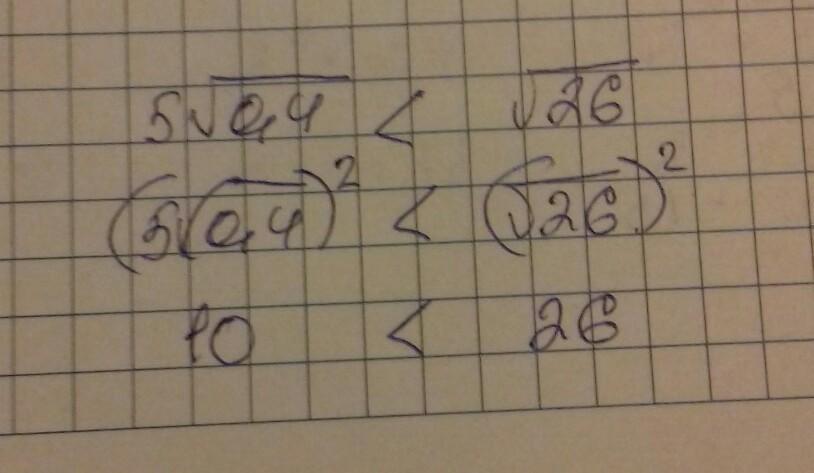 5√0,4 < √26
(5√0,4)² < (√26)²
10 < 26